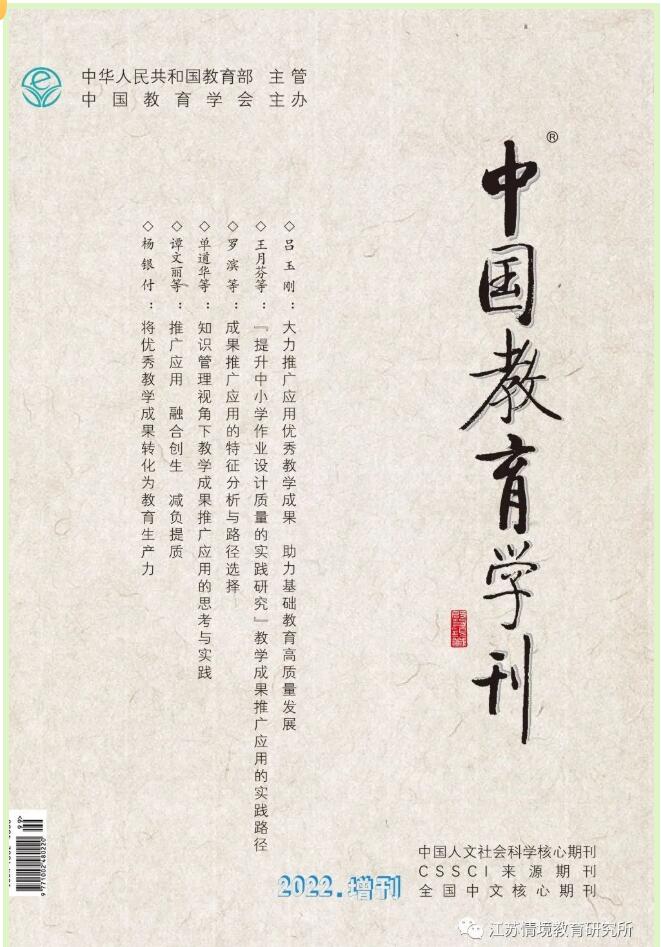 中华人民共和国教育部 主管
中国教育学会主办
®
中国教育学刊
◇吕玉刚：大力推广应用优秀教学成果 助力基础教育高质量发展
◇王月芬等：『提升中小学作业设计质量的实践研究』教学成果推广应用的实践路径
◇罗滨等：成果推广应用的特征分析与路径选择
◇单道华等：知识管理视角下教学成果推广应用的思考与实践
◇谭文丽等：推广应用 融合创生 减负提质
◇杨银付：将优秀教学成果转化为教育生产力
99
9771002480220
2022.增刊
中国人文社会科学核心期刊
CSSCI来源期刊
全国中文核心期刊
江苏情境教育研究所